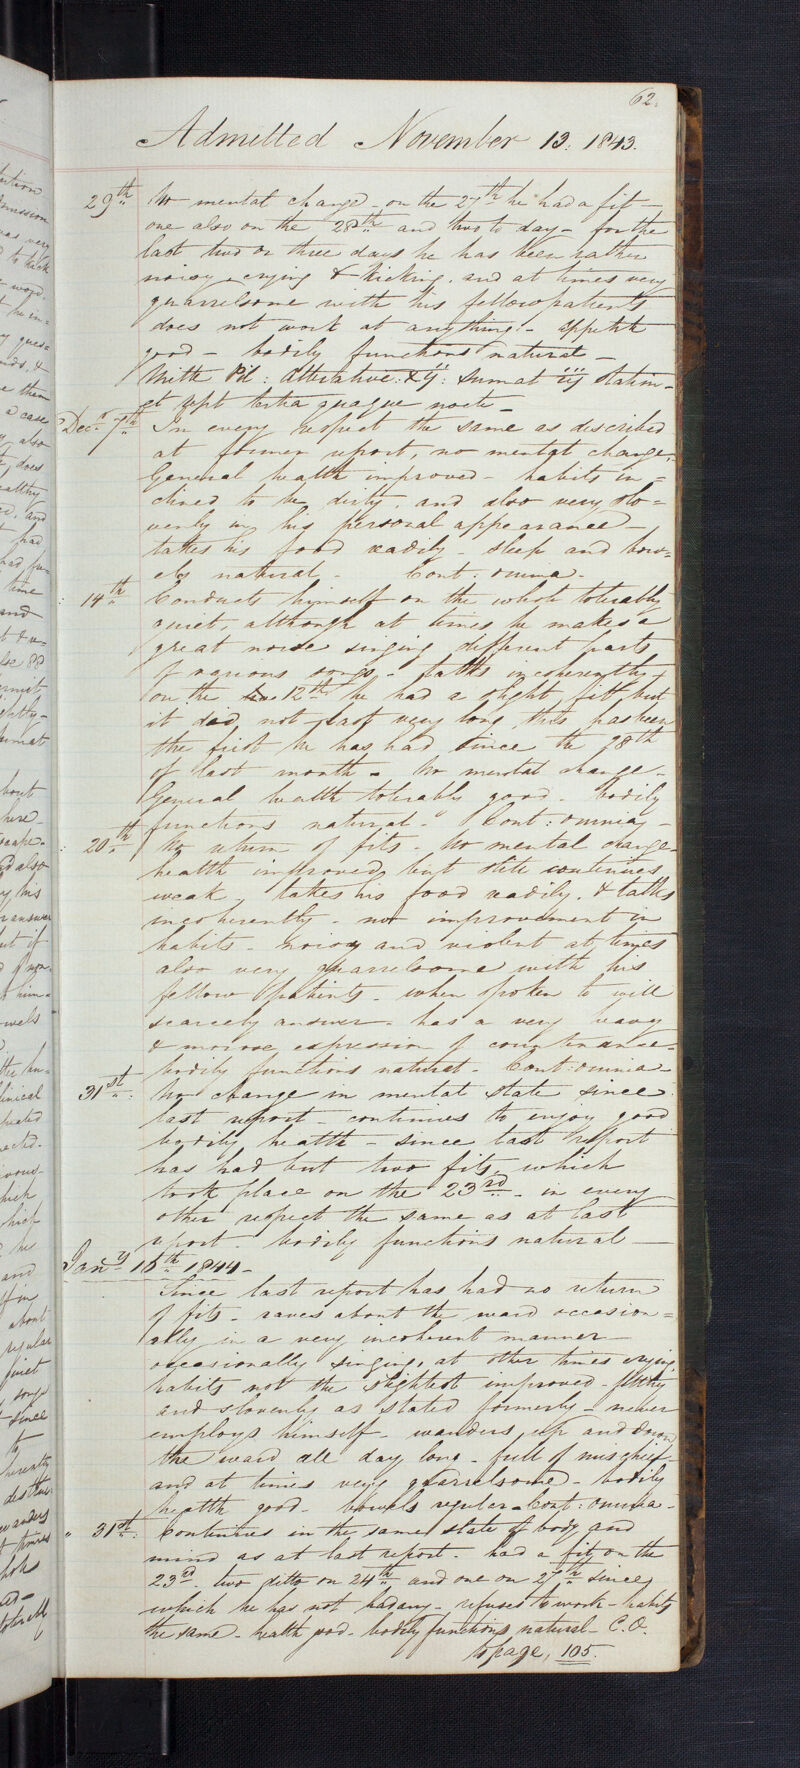 62.
Admitted November 13. 1843.
29th No mental change - on the 27th he had a fit -
one also on the 28th and two to day - for the
last two or three days he has been rather
noisy, crying & kicking, and at times very
quarrelsome with his fellow patients
does not work at anything - appetite
good - bodily functions natural -
Mitte Pil: Alterative: sumat iij statim -
et rept tertia quaque nocte -
Decr 7th In every respect the same as described
at former report, no mental change,
General health improved - habits in=
clined to be dirty, and also very slo=
venly in his personal appearance -
takes his food readily - sleep and bow=
els natural - Cont: omnia -
14th Conducts himself on the whole tolerably
quiet, although at times he makes a
great noise singing different parts
of various songs - talks incoherently -
on the 12th he had a slight fitt, but
it did not last very long, this has been
the first he has had since the 28th
of last month - No mental change -
General health tolerably good - bodily
functions natural - Cont: omnia -
20th No return of fits - No mental change
health improved, but still continues
weak - takes his food readily, & talks
incoherently - no improvement in
habits - noisy and violent at times
also very quarrelsome with his
fellow patients - when spoken to will
scarcely answer - has a very heavy
& morose expression of countenance -
bodily functions natural - Cont: omnia -
31st No change in mental state since
last report - continues to enjoy good
bodily health - since last report
has had but two fits, which
took place on the 23rd - in every
other respect the same as at last
report - bodily functions natural -
Jany 15th 1844 -
Since last report has had no return
of fits - raves about the ward occasion=
ally in a very incoherent manner -
occasionally singing, at other times crying
habits not the slightest improved - filthy
and slovenly as stated formerly - never
employs himself - wanders up and down
the ward all day long - full of mischief -
and at times very quarrelsome - bodily
health good - bowels regular - Cont: omnia -
" 31st Continues in the same state of body and
mind as at last report - had a fit on the
23rd two ditto on 24th and one on 27th since
which he has not had any - refuses to work - habits
the same - health good - bodily functions natural - C.O.
to page, 105.